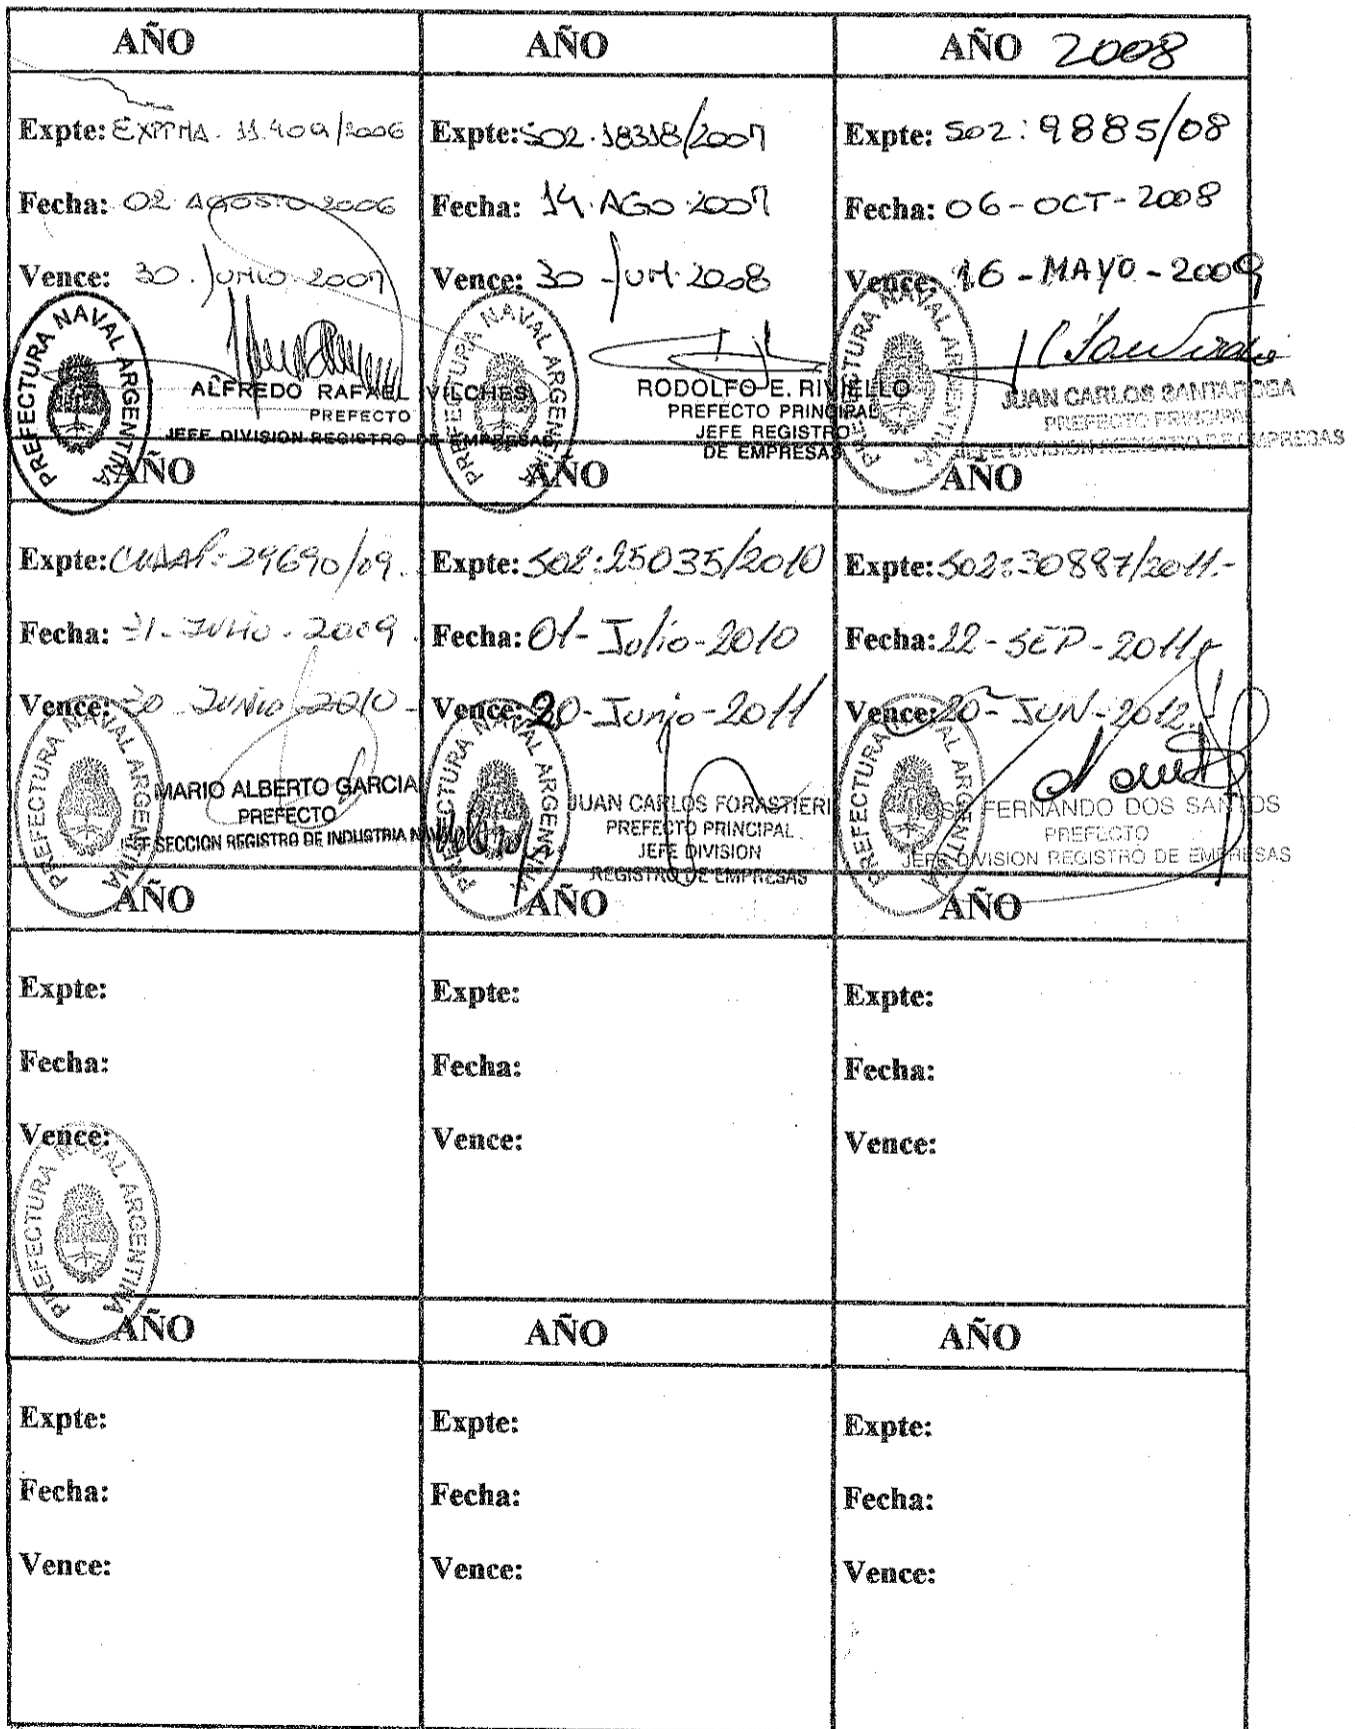 AÑO
Expte: EXPPMA. 11.409/2006
Fecha: 02 AGOSTO 2006
Vence: 30. JUNIO. 2007
PREFECTURA NAVAL ARGENTINA
ALFREDO RAFAEL VILCHES
PREFECTO
JEFE DIVISION REGISTRO DE EMPRESAS
AÑO
Expte: S02.18318/2007
Fecha: 14. AGO. 2007
Vence: 30 - JUN. 2008
PREFECTURA NAVAL ARGENTINA
RODOLFO E. RIVIELLO
PREFECTO PRINCIPAL
JEFE REGISTRO
DE EMPRESAS
AÑO 2008
Expte: S02: 9885/08
Fecha: 06-OCT-2008
Vence: 16-MAYO-2009
PREFECTURA NAVAL ARGENTINA
JUAN CARLOS SANTAROSA
PREFECTO PRINCIPAL
JEFE DIVISION REGISTRO DE EMPRESAS
AÑO
Expte: CUDAP-29690/09.
Fecha: 31-JULIO-2009.
Vence: 30 JUNIO 2010-
PREFECTURA NAVAL ARGENTINA
MARIO ALBERTO GARCIA
PREFECTO
JEFE SECCION REGISTRO DE INDUSTRIA
AÑO
Expte: S02:25035/2010
Fecha: 01-Julio-2010
Vence: 20-Junio-2011
PREFECTURA NAVAL ARGENTINA
JUAN CARLOS FORASTIERI
PREFECTO PRINCIPAL
JEFE DIVISION
REGISTRO DE EMPRESAS
AÑO
Expte: S02:30887/2011.-
Fecha: 22-SEP-2011.-
Vence: 20-JUN-2012.-
PREFECTURA NAVAL ARGENTINA
JOSE FERNANDO DOS SANTOS
PREFECTO
JEFE DIVISION REGISTRO DE EMPRESAS
AÑO
Expte:
Fecha:
Vence:
PREFECTURA NAVAL ARGENTINA
AÑO
Expte:
Fecha:
Vence:
AÑO
Expte:
Fecha:
Vence:
AÑO
Expte:
Fecha:
Vence:
AÑO
Expte:
Fecha:
Vence:
AÑO
Expte:
Fecha:
Vence: